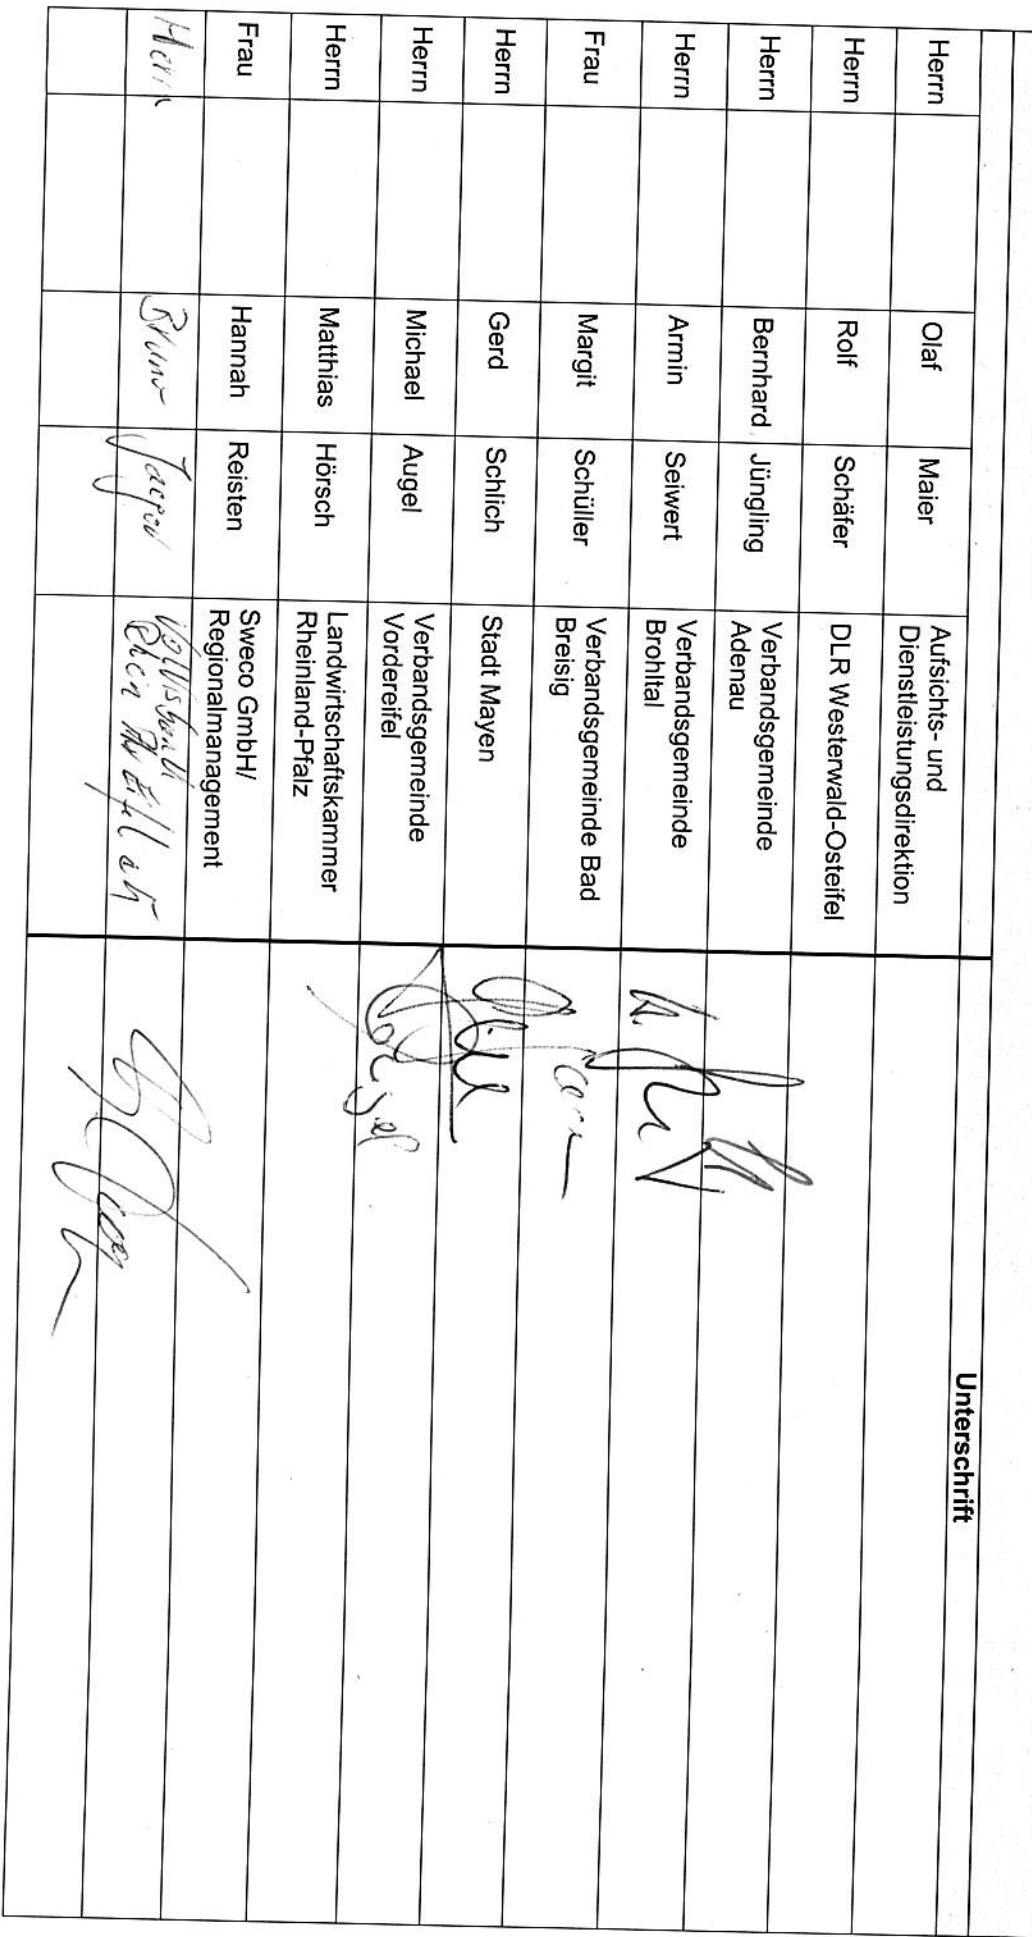 Unterschrift
Herrn Olaf Maier Aufsichts- und
Dienstleistungsdirektion
Herrn Rolf Schäfer DLR Westerwald-Osteifel
Herrn Bernhard Jüngling Verbandsgemeinde
Adenau
Herrn Armin Seiwert Verbandsgemeinde
Brohltal
Frau Margit Schüller Verbandsgemeinde Bad
Breisig
Herrn Gerd Schlich Stadt Mayen
Herrn Michael Augel Verbandsgemeinde
Vordereifel
Herrn Matthias Hörsch Landwirtschaftskammer
Rheinland-Pfalz
Frau Hannah Reisten Sweco GmbH/
Regionalmanagement
Herrn Bruno Volksbank
Rhein Ahr Eifel